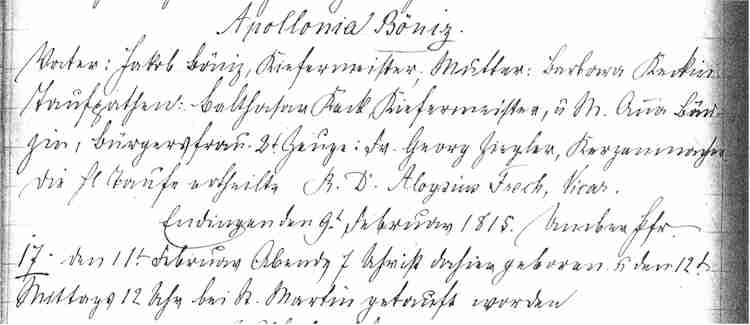 Apollonia Böniz.
Vater: Jakob Böniz, Kiefermeister, Mutter: Barbara Keckin
Taufpathen: Balthasar Keck, Kiefermeister, u M. Aña Bön-
zin, Bürgersfrau. 2t Zeuge: Fr. Georg Ziegler, Kerzenmacher
die hl Taufe ertheilte R. D. Aloysius Frech, Vicar.
Endingen den 9t Februar 1815. Pfr.
17. den 11t Februar Abends 7 Uhr ist dahier geboren u den 12t
Mittags 12 Uhr bei St. Martin getauft worden